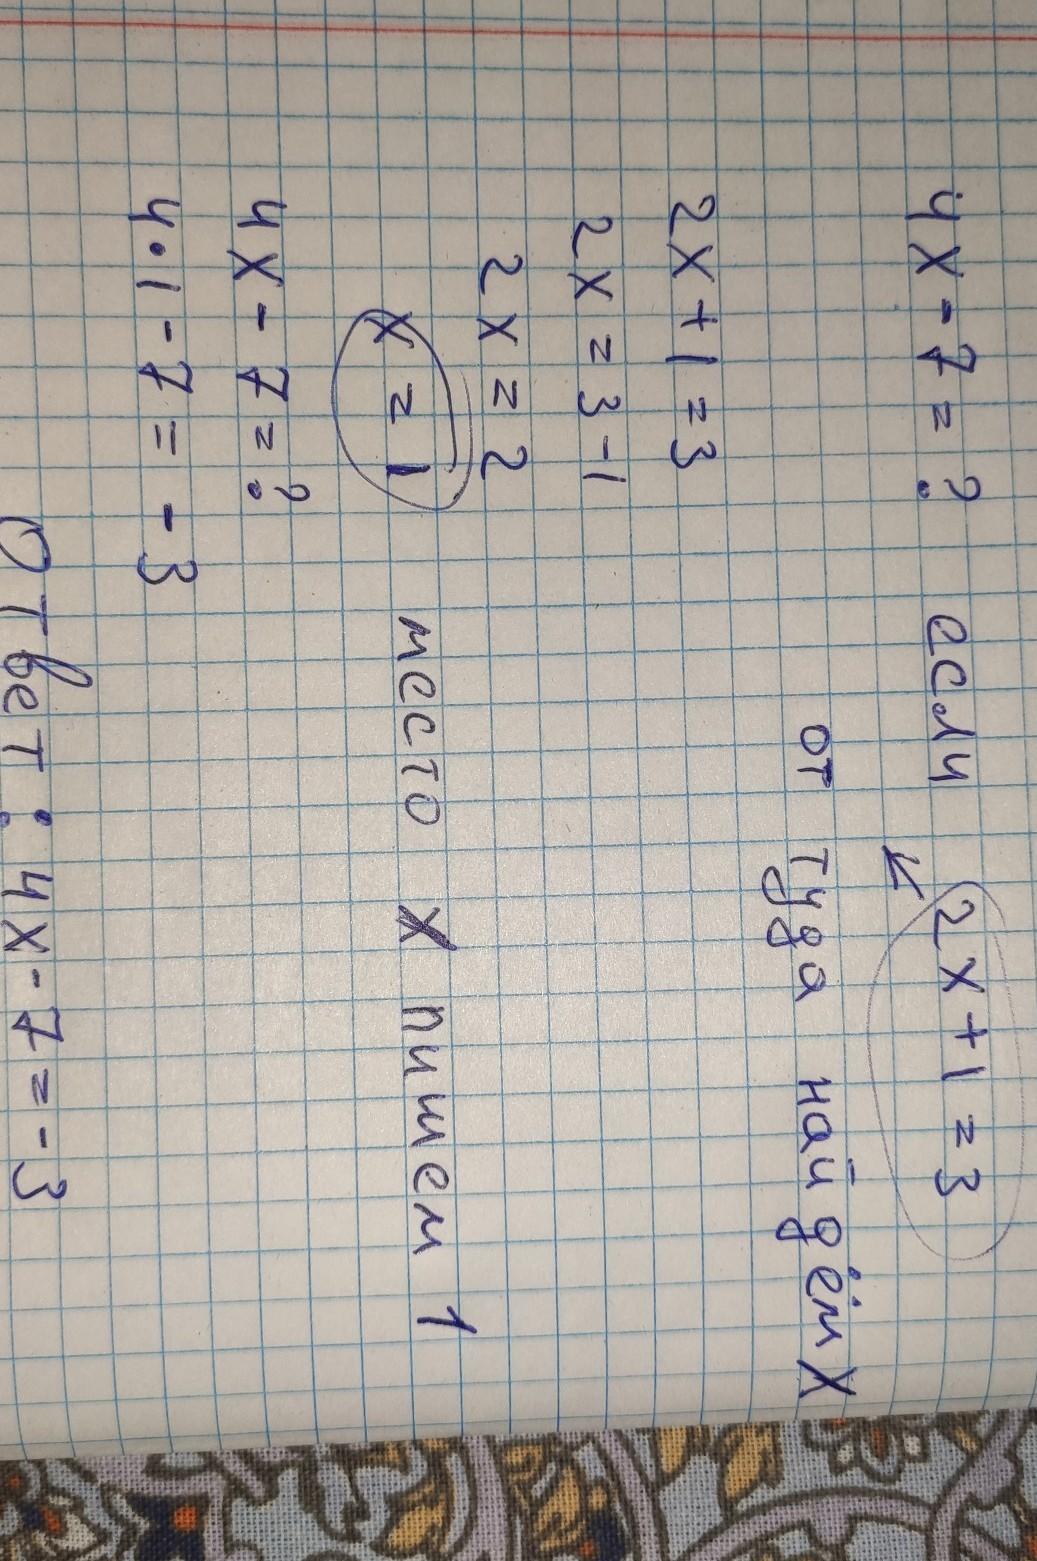 4x - 7 = ? если 2x + 1 = 3
от туда найдём X
2x + 1 = 3
2x = 3 - 1
2x = 2
x = 1 место X пишем 1
4x - 7 = ?
4 • 1 - 7 = - 3
Ответ : 4x - 7 = - 3